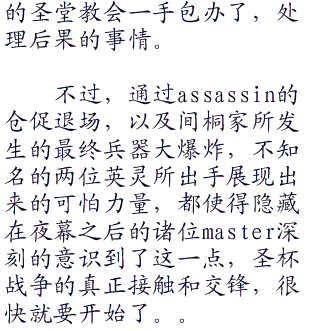 的圣堂教会一手包办了，处
理后果的事情。
不过，通过assassin的
仓促退场，以及间桐家所发
生的最终兵器大爆炸，不知
名的两位英灵所出手展现出
来的可怕力量，都使得隐藏
在夜幕之后的诸位master深
刻的意识到了这一点，圣杯
战争的真正接触和交锋，很
快就要开始了。。